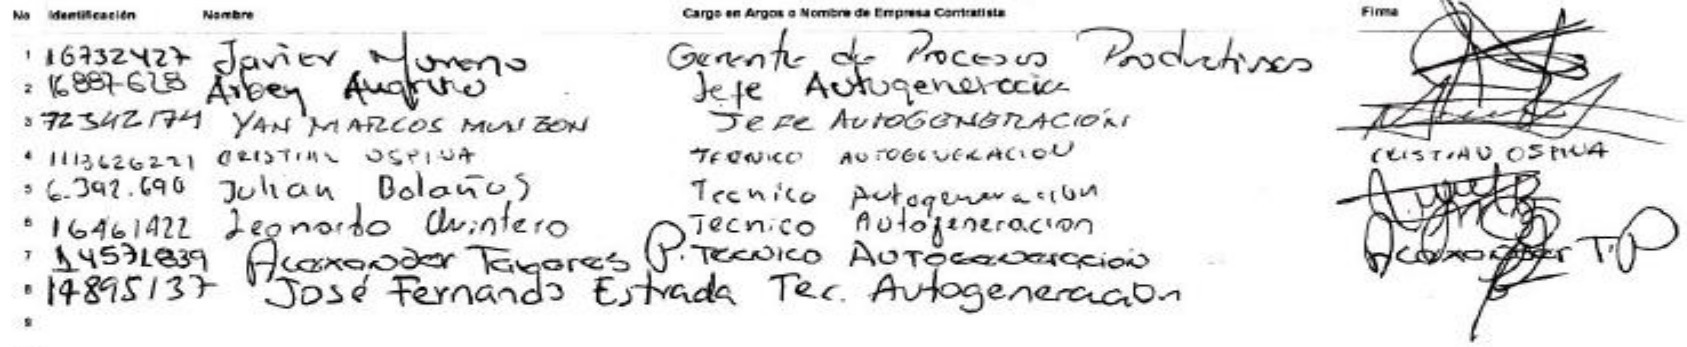 No Identificación Nombre Cargo en Argos o Nombre de Empresa Contratista Firma
1 16732427 Javier Moreno Gerente de Procesos Productivos
2 16887628 Arbey Jefe Autogeneracion
3 72342174 YAN MARCOS MUNZON JEFE AUTOGENERACIÓN
4 1113626221 CRISTIAN OSPINA TECNICO AUTOGENERACION CRISTIAN OSPINA
5 6.392.690 Julian Bolaños Tecnico Autogeneracion
6 16461422 Leonardo Quintero Tecnico Autogeneracion
7 14571839 Alexander Tavares P. TECNICO AUTOGENERACION Alexander T.P
8 14895137 José Fernando Estrada Tec. Autogeneracion
9